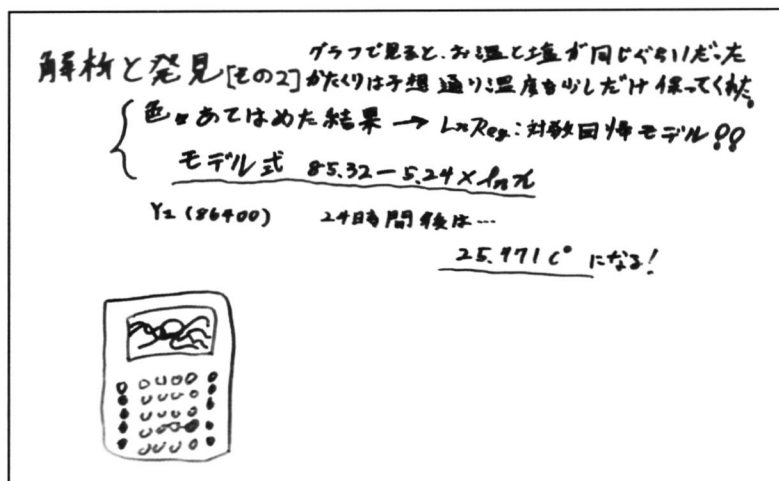 解析と発見[その2]
グラフで見ると、お湯と塩が同じぐらいだった
かたくりは予想通り温度を少しだけ保ってくれた。
色々あてはめた結果 → LnReg:対数回帰モデル!!
モデル式 85.32-5.24×ln x
Y1(86400) 24時間後は…
25.771C° になる!